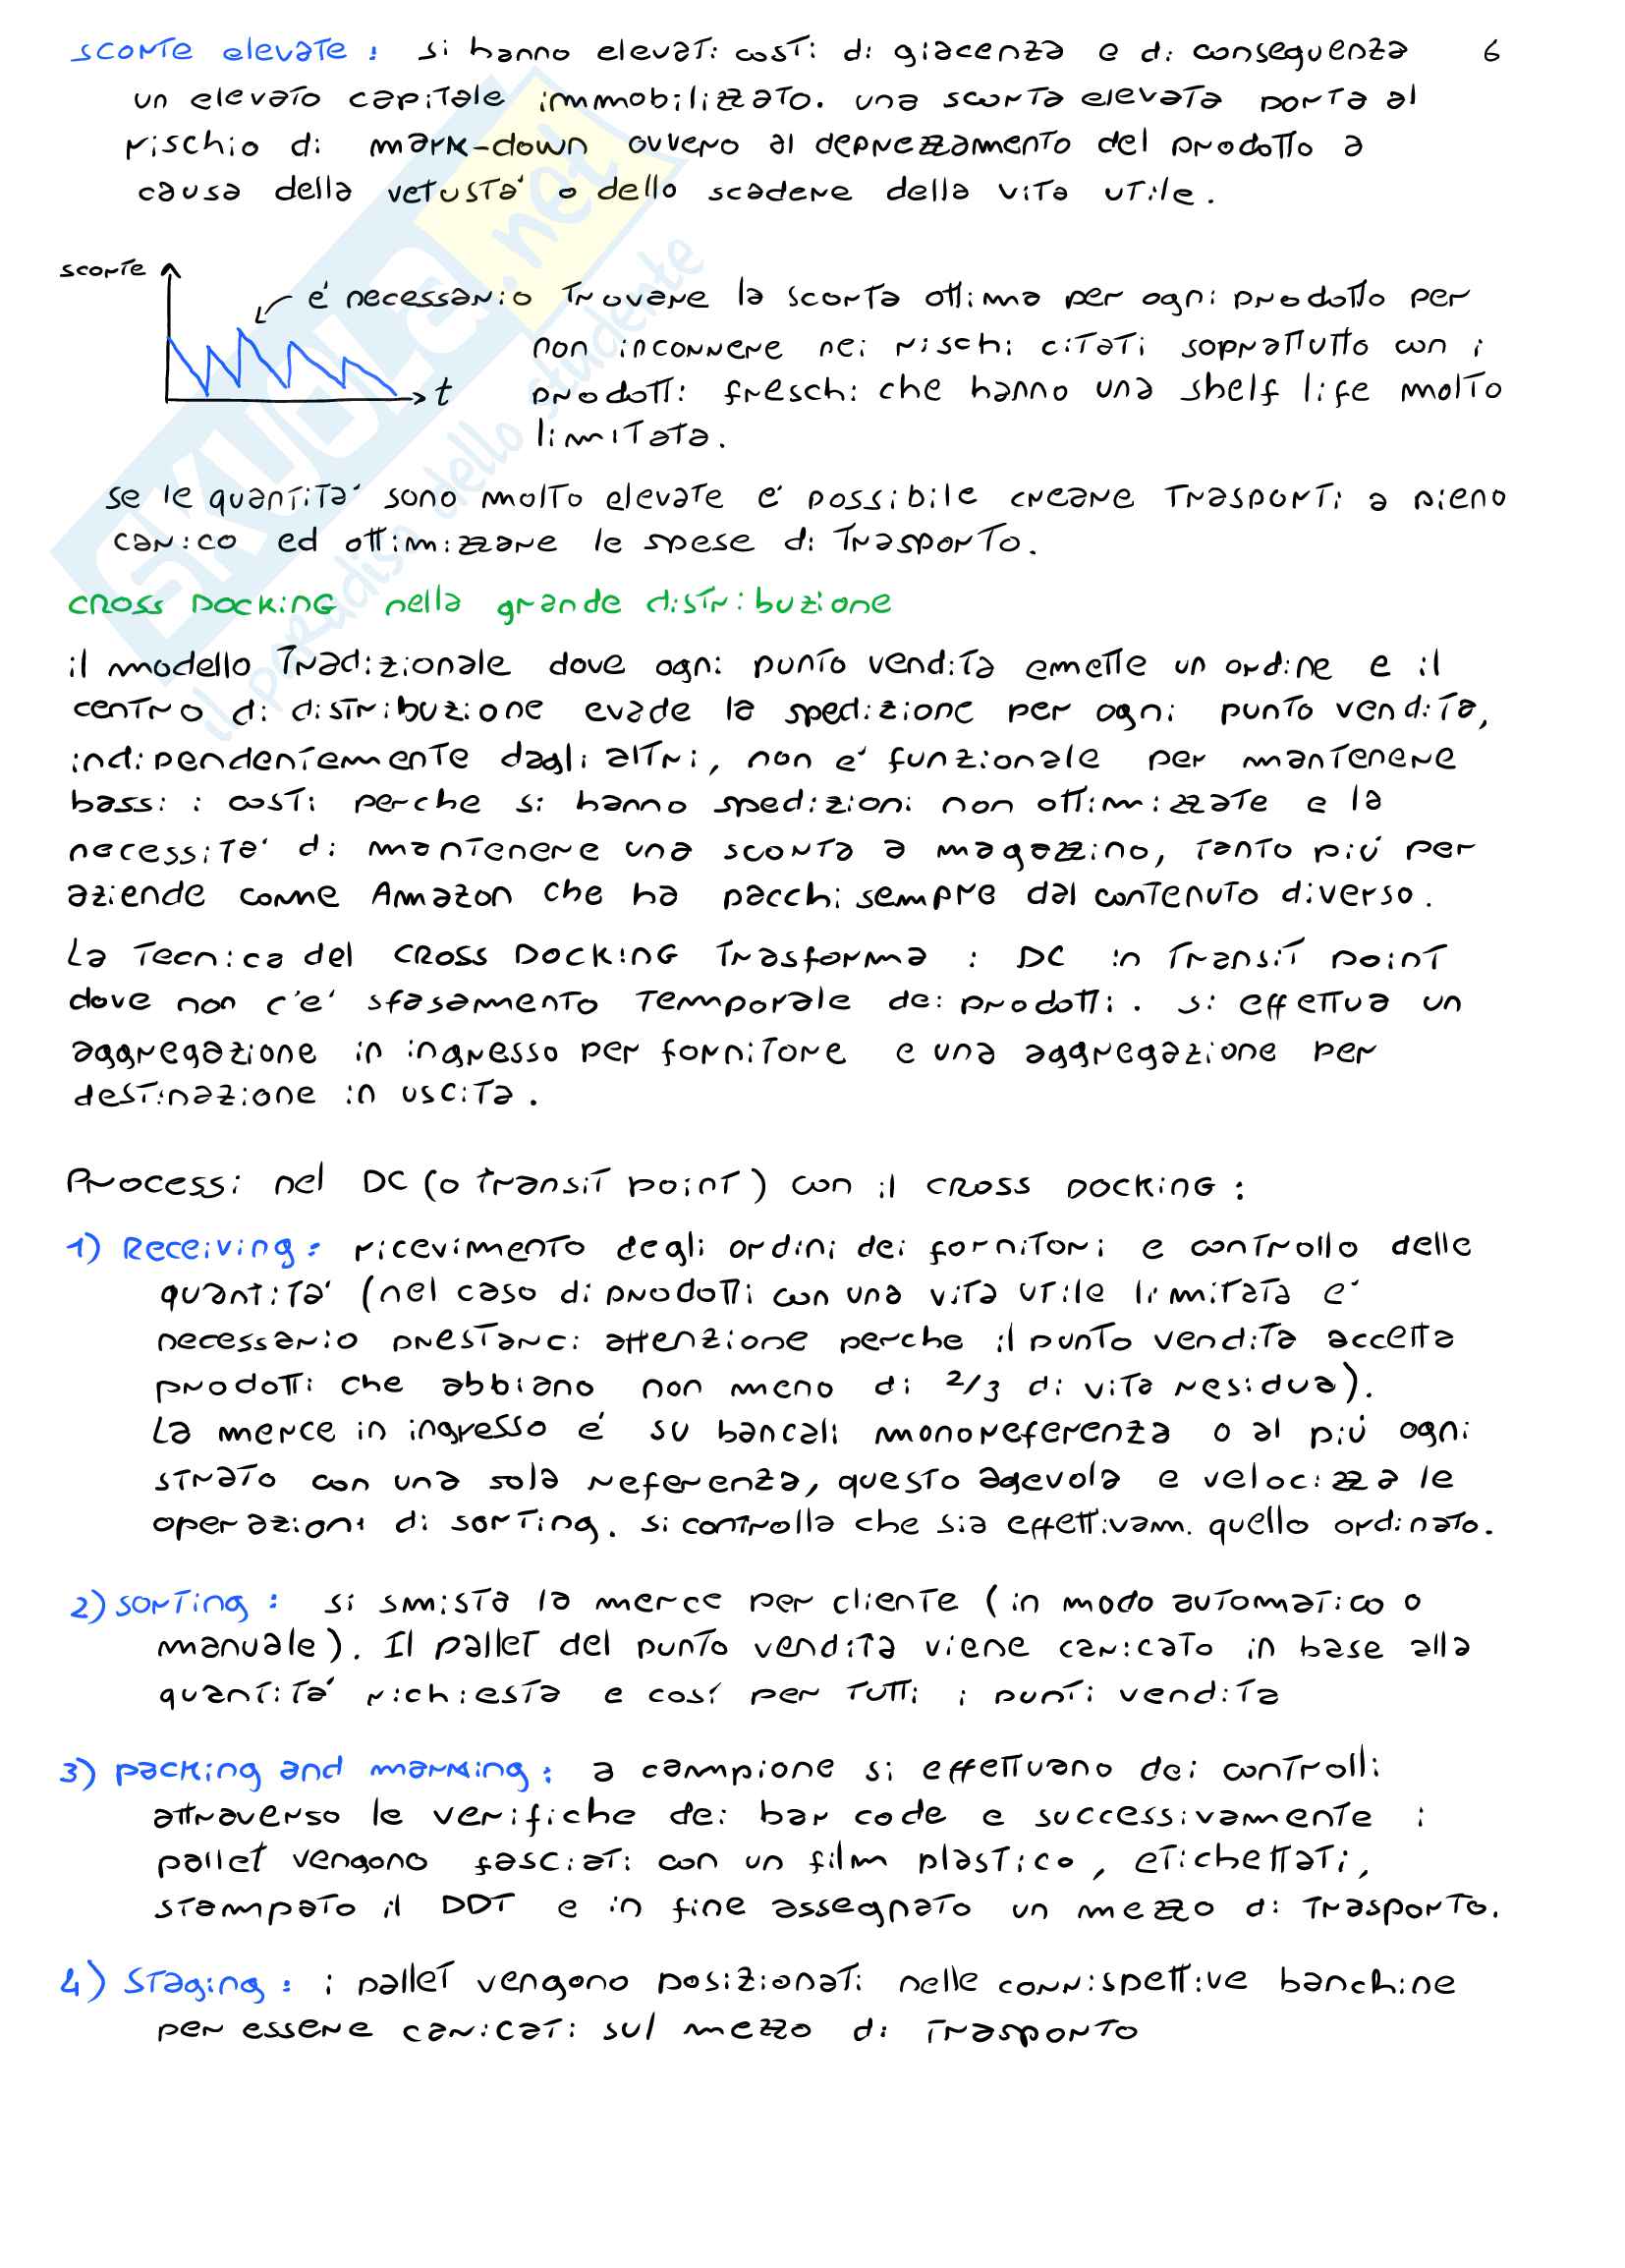 scorte elevate : si hanno elevati costi di giacenza e di conseguenza 6
un elevato capitale immobilizzato. una scorta elevata porta al
rischio di mark-down ovvero al deprezzamento del prodotto a
causa della vetustà o dello scadere della vita utile.
scorte
é necessario trovare la scorta ottima per ogni prodotto per
non incorrere nei rischi citati soprattutto con i
t prodotti freschi che hanno una shelf life molto
limitata.
se le quantità sono molto elevate é possibile creare trasporti a pieno
carico ed ottimizzare le spese di trasporto.
CROSS DOCKING nella grande distribuzione
il modello tradizionale dove ogni punto vendita emette un ordine e il
centro di distribuzione evade la spedizione per ogni punto vendita,
indipendentemente dagli altri, non e' funzionale per mantenere
bassi i costi perche si hanno spedizioni non ottimizzate e la
necessità di mantenere una scorta a magazzino, tanto piú per
aziende come Amazon che ha pacchi sempre dal contenuto diverso.
La tecnica del CROSS DOCKING trasforma i DC in transit point
dove non c'e' sfasamento temporale dei prodotti. si effettua un
aggregazione in ingresso per fornitore e una aggregazione per
destinazione in uscita.
Processi nel DC (o transit point) con il CROSS DOCKING :
1) Receiving : ricevimento degli ordini dei fornitori e controllo delle
quantità (nel caso di prodotti con una vita utile limitata e'
necessario prestarci attenzione perche il punto vendita accetta
prodotti che abbiano non meno di 2/3 di vita residua).
La merce in ingresso é su bancali monoreferenza o al piú ogni
strato con una sola referenza, questo agevola e velocizza le
operazioni di sorting. si controlla che sia effettivam. quello ordinato.
2) sorting : si smista la merce per cliente (in modo automatico o
manuale). Il pallet del punto vendita viene caricato in base alla
quantità richiesta e cosí per tutti i punti vendita
3) packing and marking : a campione si effettuano dei controlli
attraverso le verifiche dei bar code e successivamente i
pallet vengono fasciati con un film plastico, etichettati,
stampato il DDT e in fine assegnato un mezzo di trasporto.
4) Staging : i pallet vengono posizionati nelle corrispettive banchine
per essere caricati sul mezzo di trasporto
SKUOLA.net
il paradiso dello studente